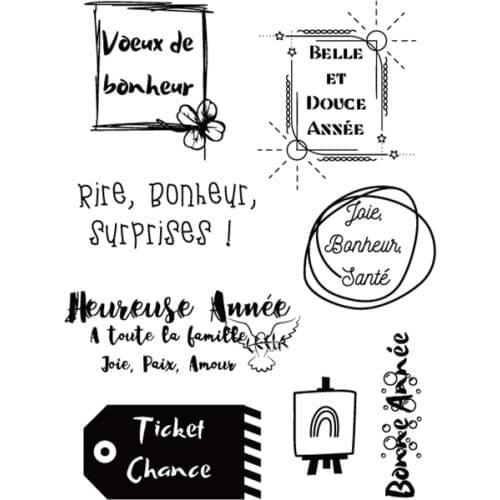 Voeux de
bonheur
BELLE
ET
DOUCE
ANNÉE
Rire, Bonheur,
surprises !
Joie,
Bonheur,
Santé
Heureuse Année
A toute la famille
Joie, Paix, Amour
Bonne Année
Ticket
Chance